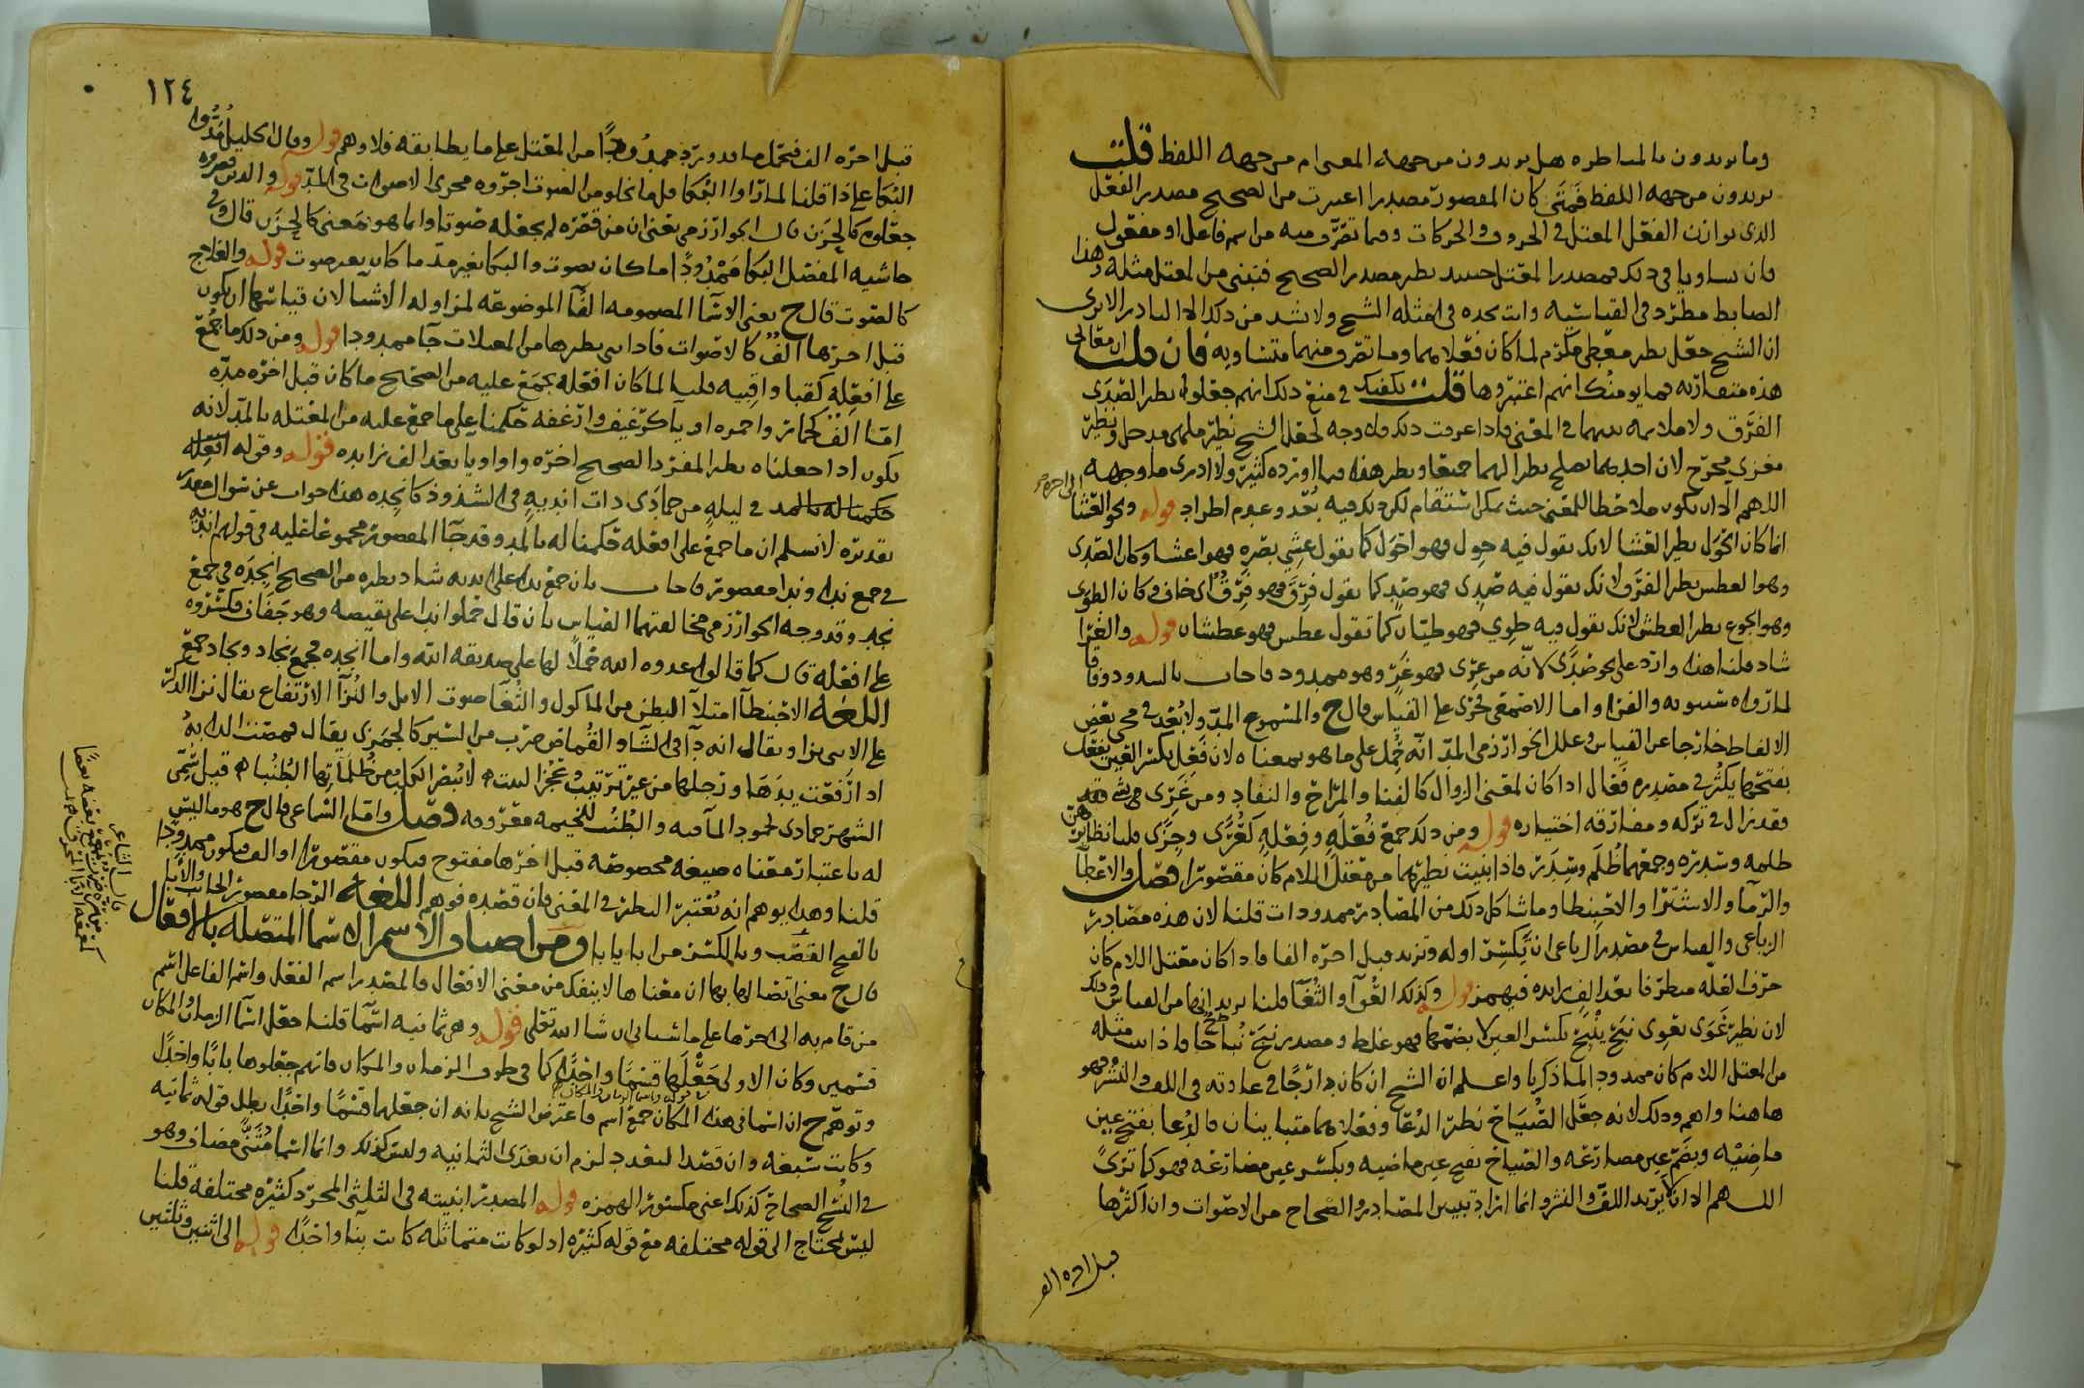 وما يريدون بالمناظرة هل يريدون من جهة المعنى ام من جهة اللفظ قلت
يريدون من جهة اللفظ فمتى كان المقصور مصدرا اعتبرت من الصحيح مصدر الفعل
الذي يوازن الفعل المعتل في الحروف والحركات وفيما تصرف منه من اسم فاعل او مفعول
فان تساويا في ذلك فمصدر المعتل حينئذ نظير مصدر الصحيح فتبني من المعتل مثله وهذا
الضابط مطرد في القياسية وانت تجده في امثلة الشيخ ولا يشذ من ذلك الا النادر الا ترى
ان الشيخ جعل نظير معطى مكرم لما كان فعلاهما وما تصرف منهما متساويه فان قلت ان معاني
هذه متقاربة فما يومنك انهم اعتبروها قلت يكفيك في منع ذلك انهم جعلوا نظير الصدى
الفرق ولا ملايمة بينهما في المعنى فاذا عرفت ذلك فلا وجه لجعل الشيخ نظير ملهى مدخل ونظير
مغزى مخرج لان احدهما يصلح نظيرا لهما جميعا ونظير هذا فيما اورده كثير ولا ادري ما وجهه
اللهم الا ان يكون ملاحظا للمعنى حيث يمكن استقام لكن ذلك فيه بعد وعدم اطراد قوله ونحو العشا
انما كان الحول نظير العشا لانك تقول فيه حول فهو احول كما تقول عشي بصره فهو اعشا وكان الصدى
وهو العطش نظير الفرق لانك تقول فيه صدي فهو صد كما تقول فرق فهو فرق اي خاف وكان الطوى
وهو الجوع نظير العطش لانك تقول فيه طوي فهو طيان كما تقول عطش فهو عطشان قوله والغرا
شاذ قلنا هذا وارد على نحو صدى لانه من غري فهو غر وهو ممدود فاجاب بالشذوذ وفاقا
لما رواه سيبويه والفرا واما الاصمعي فجرى على القياس قال ح والمسموع المد ولا بعد في مجي بعض
الالفاظ خارجا عن القياس وعلل الخوارزمي المد انه حمل على ما هو بمعناه لان فعل بكسر العين يفعل
بفتحها يكثر في مصدره فعال اذا كان لمعنى الزوال كالفنا والمراح والنفاد ومن غري فقد
فقد زال في تركه ومفارقه اختياره قوله ومن ذلك جمع فعلة وفعلة كعرى وجزى قلنا نظايرهن
ظلمه وسدره وجمعهما ظلم وسدر فاذا بنيت نظيرهما من معتل اللام كان مقصورا فصل والاعطا
والرما والاشترا والاحبنطا وما شاكل ذلك من المصادر ممدودات قلنا لان هذه مصادر
الرباعي والقياس في مصدر الرباعي ان يكسر اوله وتزيد قبل اخره الفا فاذا كان معتل اللام كان
حرف العلة متطرفا بعد الف زايده فيهمز قوله وكذلك العوا والثغا قلنا يريد انها من القياس وذلك
لان نظير عوى يعوى نبح ينبح بكسر العين لا بضمها فهو غلط ومصدر نبح نباحا فاذا بنيت مثله
من المعتل اللام كان ممدودا لما ذكرنا واعلم ان الشيخ ان كان دارجا في عادته في اللف والنشر فهو
هاهنا واهم وذلك لانه جعل الصياح نظير الدعا وفعلاهما متباينان فالدعا بفتح عين
ماضيه وبضم عين مضارعه والصياح بفتح عين ماضيه وبكسر عين مضارعه فهو كما ترى
اللهم الا ان لا يريد اللف والنشر وانما اراد تبيين المصادر والصحاح من الاصوات وان اكثرها
قبل اخره الف
١٢٤
قبل اخره الف فتحمل ما قدور ترد ممدودا من المعتل على ما يطابقه فلا وهم قوله وقال الخليل مدوا
البكا على ذا قلنا لما راوا البكا قل ما يخلو من الصوت اجروه مجرى الاصوات في المد قوله والذين قصروه
جعلوه كالحزن قال الخوارزمي يعني ان من قصره لم يجعله صوتا وانما هو معنى كالحزن قال وفي
حاشية المفصل البكا ممدودا ما كان بصوت والبكا بغير مد ما كان بغير صوت قوله والعلاج
كالصوت قال ح يعني الاسما المضمومه الفا الموضوعه لمزاوله الاشيا لان قياسها ان يكون
قبل اخرها الف كالاصوات فاذا بني نظيرها من المعتلات جا ممدودا قوله ومن ذلك ما جمع
على افعله كقبا واقبيه قلنا لما كان افعله يجمع عليه من الصحيح ما كان قبل اخره مده
اما الف كحمار واحمره او يا كرغيف وارغفه حكمنا على ما جمع عليه من المعتله بالمد لانه
يكون اذا جعلناه نظير المفرد الصحيح اخره واوا ويا بعد الف زايده قوله وقوله افعله
حكمنا له بالمد في ليلة من جمادى ذات اندية في الشذوذ كانجده هذا جواب عن سوال مقدر
تقديره لا نسلم ان ما جمع على افعله حكمنا له بالمد وقد جا المقصور مجموعا عليه في قولهم انديه
في جمع ندا وندا مقصور فاجاب بان جمع ندا على انديه شاذ نظيره من الصحيح انجده في جمع
نجد وقد وجه الخوارزمي مخالفتهما القياس بان قال حملوا ندا على نقيضه وهو جفاف فكسروه
على افعله قال كما قالوا عدوه الله حملا لها على صديقه الله واما انجده فجمع نجاد ونجاد جمع
اللغة الاحبنطا امتلا البطن من الماكول والثغا صوت الابل والنزا الارتفاع يقال نزا الذكر
على الانثى نزا ويقال انه دا في الشا والقماص ضرب من السير كالجمزى يقال قمصت الدابه
اذا رفعت يدها ورجلها من غير ترتيب وعجز البيت لا يبصر الكلب من ظلمائها الطنبا قيل سمى
الشهر جمادى لجمود الما فيه والطنب للخيمه معروفه فصل واما السماعي قال ح هو ما ليس
له باعتبار معناه صيغه مخصوصه قبل اخرها مفتوح فيكون مقصورا او الف فيكون ممدودا
قلنا وهذا يوهم انه تعتبر النظير في المعنى فان قصده فوهم اللغة الرجا مقصور الجانب والابا
بالفتح القصب وبالكسر من ابا يابا ومن اصناف الاسم الاسما المتصله بالافعال
قال ح معنى اتصالها بها ان معناها لا ينفك من معنى الافعال فالمصدر اسم الفعل واسم الفاعل اسم
من قام به الى اخرها على ما ان شا الله تعالى قوله وهي ثمانيه اسما قلنا جعل اسما الزمان والمكان
قسمين وكان الاولى جعلها قسما واحدا كما في ظرف الزمان والمكان فانهم جعلوها بابا واحدا
وتوهم ح ان اسما في هذا المكان جمع اسم فاعترض الشيخ بانه ان جعلها قسما واحدا بطل قوله ثمانيه
وكانت سبعه وان قصد التعدد لزم ان تعدى الثمانيه وليس كذلك وانما اسما مثنى مضاف وهو
في النسخ الصحاح كذلك اعني مكسور الهمزه قوله المصدر ابنيته في الثلاثي المجرد كثيره مختلفه قلنا
ليس يحتاج الى قوله مختلفه مع قوله كثيره اذ لو كانت متماثله كانت بنا واحدا قوله الى اثنين وثلثين
قال الشاعر